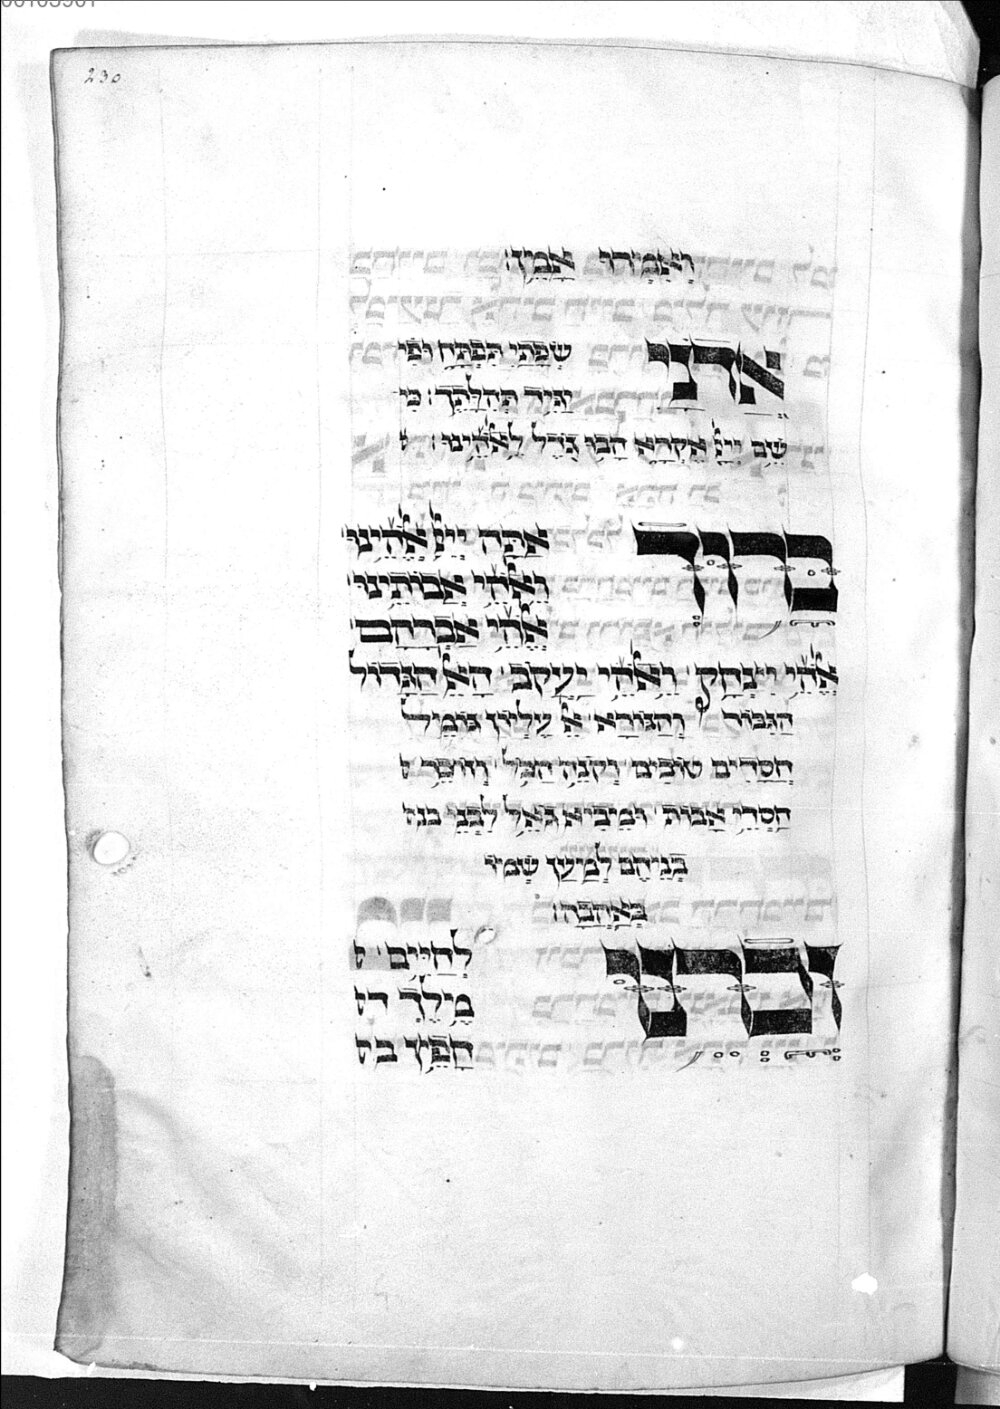 230
וְאִמְרוּ אָמֵן:
אדני שְׂפָתַי תִּפְתָּח וּפִי
יַגִּיד תְּהִלָּתֶךָ: כִּי
שֵׁם יְיָ אֶקְרָא הָבוּ גֹדֶל לֵאלֹהֵינוּ:
ברוך אַתָּה יְיָ אֱלֹהֵינוּ
וֵאלֹהֵי אֲבוֹתֵינוּ
אֱלֹהֵי אַבְרָהָם
אֱלֹהֵי יִצְחָק וֵאלֹהֵי יַעֲקֹב הָאֵל הַגָּדוֹל
הַגִּבּוֹר וְהַנּוֹרָא אֵל עֶלְיוֹן גּוֹמֵל
חֲסָדִים טוֹבִים וְקֹנֵה הַכֹּל וְזוֹכֵר
חַסְדֵי אָבוֹת וּמֵבִיא גוֹאֵל לִבְנֵי בנ
בְנֵיהֶם לְמַעַן שְׁמוֹ
בְּאַהֲבָה:
זכרנו לְחַיִּים
מֶלֶךְ ח
חָפֵץ ב